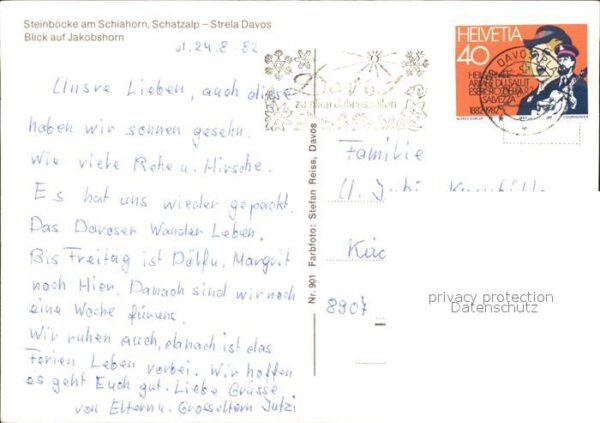 Steinböcke am Schiahorn, Schatzalp – Strela Davos
Blick auf Jakobshorn
24.8-82
Unsre Lieben, auch diese
haben wir schon gesehn.
Wie viele Rehe u. Hirsche.
Es hat uns wieder gepackt.
Das Davoser Wander Leben.
Bis Freitag ist Dölfu. Margrit
noch Hier. Danach sind wir noch
eine Woche für uns.
Wir ruhen auch, danach ist das
Ferien Leben vorbei. Wir hoffen
es geht Euch gut. Liebe Grüsse
von Eltern u. Grosseltern Jutzi
Nr. 901 Farbfoto: Stefan Reiss, Davos
Davos
zu allen Jahreszeiten
HELVETIA
40
HEILSARMEE
ARMÉE DU SALUT
ESERCITO DELLA
SALVEZZA
1882-1982
DAVOS
Familie
Kirc
8907
privacy protection
Datenschutz